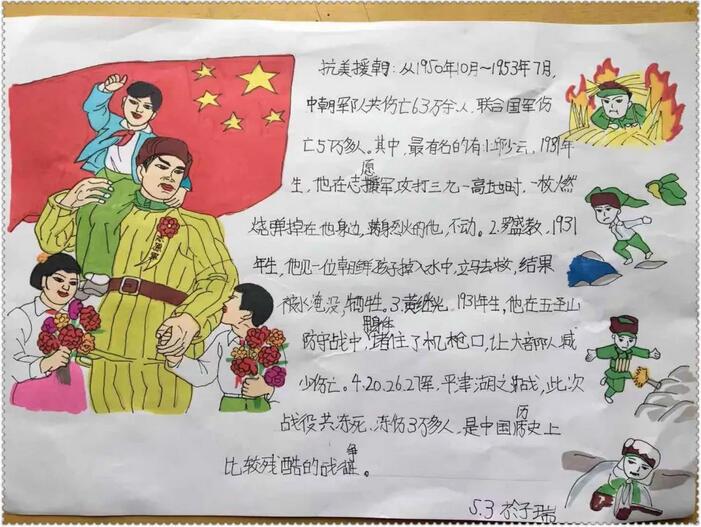 抗美援朝:从1950年10月~1953年7月,
中朝军队共伤亡63万余人,联合国军伤
亡5万多人。其中,最有名的有1.邱少云,1931年
生,他在志愿军攻打三九一高地时,一枚燃
烧弹掉在他身边,满身烈火的他,不动。2.罗盛教,1931
年生,他见一位朝鲜孩子掉入水中,立马去救,结果
被水淹没,牺牲。3.黄继光,1931年生,他在五圣山
防守战中,堵住了机枪口,让大部队减
少伤亡。4.20.26.27军,平津湖之战,此次
战役共冻死、冻伤3万多人,是中国历史上
比较残酷的战争。
5.3 於子瑞